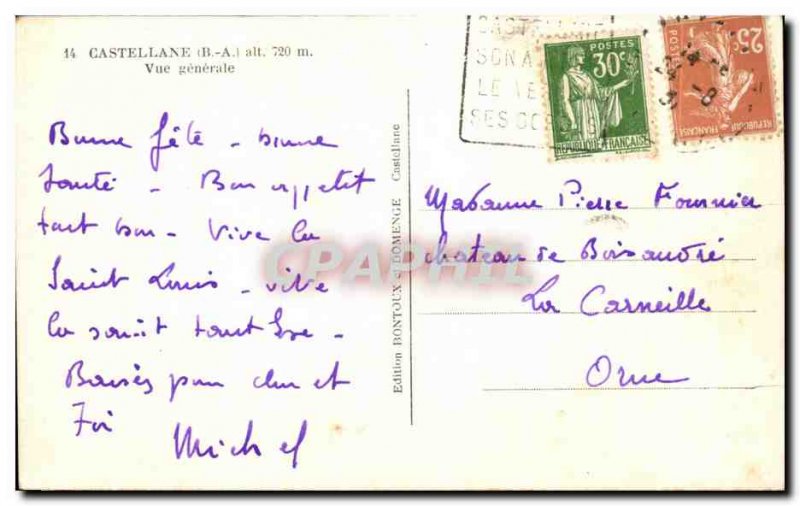 14 CASTELLANE (B.-A.) alt. 720 m.
Vue générale
Bonne fête - bonne
santé - Bon appetit
tout bon - Vive la
Saint Louis - vive
la
Baisés pour
Michel
Edition BONTOUX et DOMENGE Castellane
CASTELLANE
SON A
LE VE
SES GOR
POSTES
30c
REPUBLIQUE FRANÇAISE
25c
POSTES
REPUBLIQUE FRANÇAISE
Madame Pierre Fournier
chateau de Boisandré
La Carneille
Orne
CPAPHIL